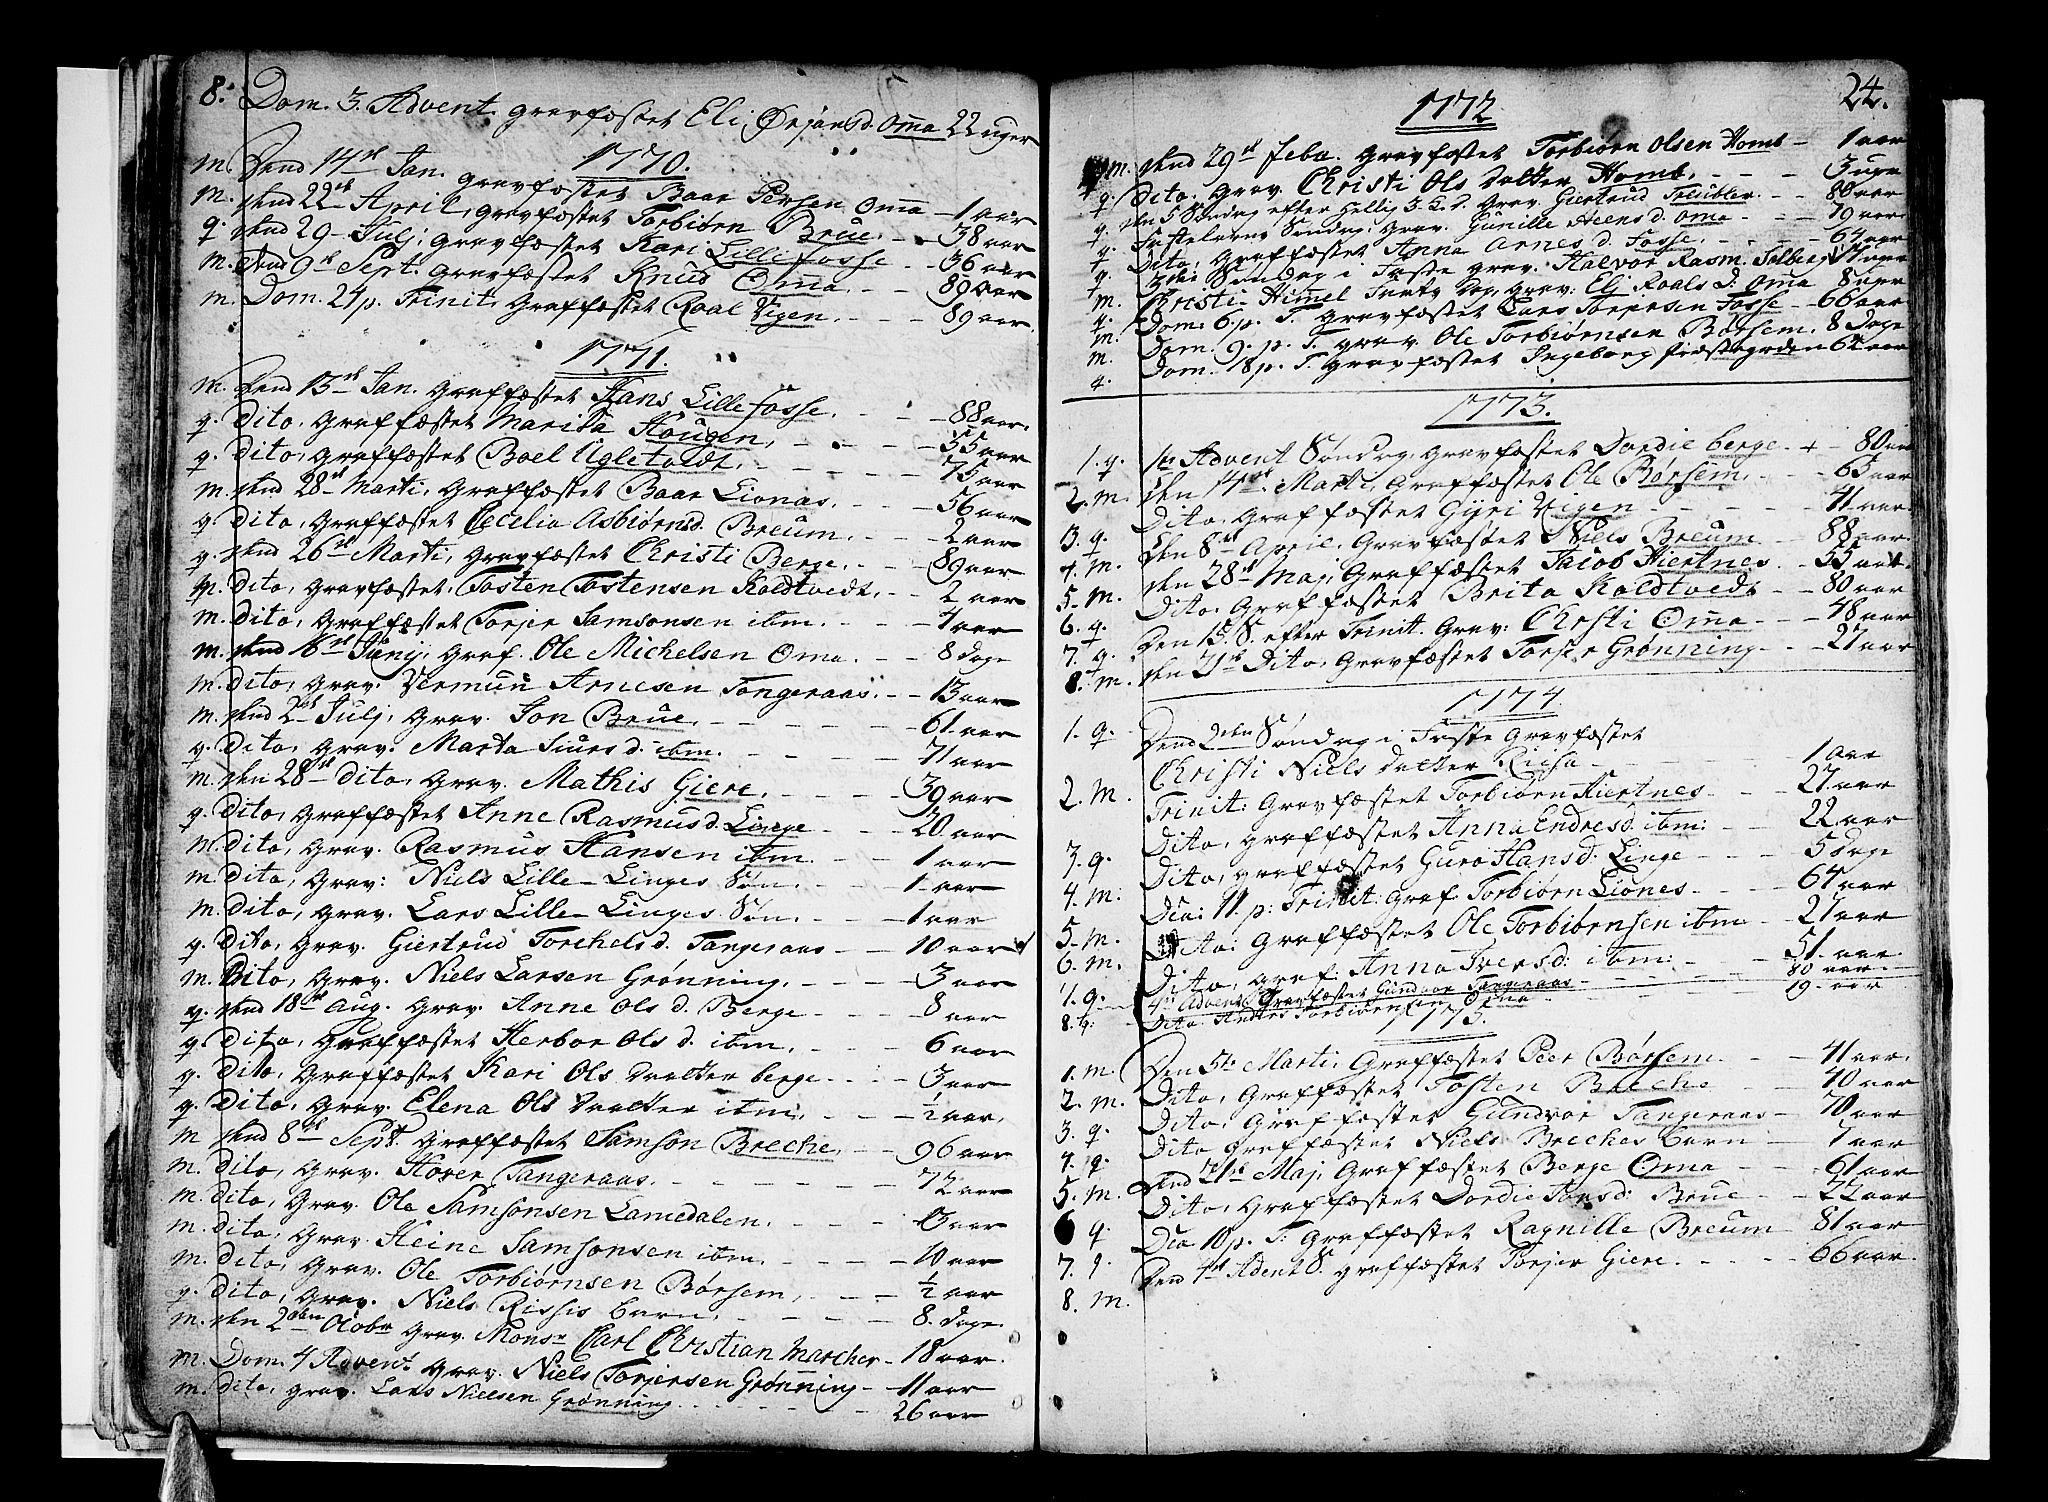 8. Dom. 3. Advent gravfæstet Eli Ørjansd. Oma 22 uger
1770.
m. Dend 14de Jan. gravfæstet Baar Persen Oma – 1 aar
m. dend 22de April, gravfæstet Torbiørn Breue. – 38 aar
q. dend 29 Julj, gravfæstet Kari Lille fosse – 36 aar
m. dend 9de Sept. gravfæstet Knud Oma. – 89 aar
m. Dom. 24 p. Trinit: Graffæstet Roal Vigen. – 89 aar.
1771.
m. dend 13de Jan. Graffæstet Hans Lille fosse. – 88 aar.
q. Dito, Graffæstet Marita Hougen, – 55 aar
q. Dito, Graffæstet Boel Ugletvedt. – 75 aar
m. dend 28de Marti, Graffæstet Baar Lionas. – 56 aar
q. Dito, Graffæstet Cecelia Asbiørnsd. Breum. – 2 aar
q. dend 26de Marti, Gravfæstet Christi Berge. – 89 aar
m. Dito, gravfæstet, Tosten Tostensen Koldtvedt. – 2 aar
m. Dito, Graffæstet Torjer Samsonsen ibm. – 4 aar
m. dend 16de Junj, Graf. Ole Michelsen Oma. – 8 dage
m. Dito, Grav. Vermun Arnesen Tangeraas. – 13 aar
m. dend 2de Julj, Grav. Jon Breue. – 61 aar
q. Dito, Grav. Marta Siurs d. ibm. – 71 aar
m. den 28de Dito, Grav. Mathis Giere. – 39 aar
q. Dito, Graffæstet Anne Rasmusd. Linge – 20 aar
m. Dito, Grav. Rasmus Hansen ibm. – 1 aar
m. Dito, Grav: Niels Lille-Linges Søn. – 1 aar
m. Dito, Grav. Lars Lille-Linges Søn. – 1 aar
q. Dito, Grav. Giertrud Torchelsd. Tangeraas – 10 aar
m. Dito, Grav. Niels Larsen Grønning. – 3 aar
q. dend 18de Aug. Grav. Anne Ols d. Berge – 8 aar
q. Dito, Graffæstet Herbor Ols d. ibm. – 6 aar
q. Dito, Graffæstet Kari Ols datter berge – 3 aar
q. Dito, Grav. Elena Ols datter ibm. – ½ aar.
m dend 8de Sept. Graffæstet Samson Breche. – 96 aar
m. Dito, Grav. Hover Tangeraas. – 72 aar
m. Dito, Grav. Ole Samsonsen Lamedalen. – 13 aar
m. Dito, Grav. Heine Samsonsen ibm. – 10 aar
m. Dito, Grav. Ole Torbiørnsen Børsem. – ½ aar
q. Dito, Grav. Niels Rissis barn. – 8. dage
m. den 2den Octobr Grav. Monsr Carl Christian Marcher – 18 aar.
m. Dom. 4 Advent Grav. Niels Torjersen Grønning – 11 aar
m. Dito, grav. Lars Nielsen Grønning – 26 aar
24.
1772.
m. dend 29de Feba. Gravfæstet Torbiørn Olsen Homb – 1 aar
q Dito, Grav. Christi Ols datter Homb. – 3 uger
q den 5 Søndag efter Hellig 3. K. d. Grav. Giertrud Treubler – 80 aar
q. Fastelavns Søndag, Grav. Gunille Heens d. Oma – 79 aar
q Dito, Graffæstet Anna Arnes d. Fosse. – 64 aar
m. 3die Søndag i Faste grav. Halvor Rasm. Solberg 14 uger
q. Christi-Himmel Farts Dag, grav: Eli Roals d. Oma 8 uger
m. Dom. 6. p. T. gravfæstet Lars Torjersen Fosse – 66 aar
m. Dom. 9. p. T. grav. Ole Torbiørnsen Børsem. 8 dage
q. Dom. 18 p. T. gravfæstet Ingeborg Præstegrden 64 aar
1773.
1. q. 1te Advent Søndag, gravfæstet Dordie berge. + – 80 aar
2. m. den 14de Marti, Graffæstet Ole Børsem. – 65 aar
3. q. Dito, Graffæstet Gyri Vigen – 41 aar.
4. m. den 8de April, Gravfæstet Niels Breum – 88 aar.
5. m. den 28de Maj, Graffæstet Jacob Hiertnes – 55 aar.
6. q. Dito, Graffæstet Brita Koldtvedt – 80 aar
7. q. Den 15. S. efter Trinit. Grav: Christi Oma – 48 aar
8. m. den 21de Dito, Gravfæstet Torjer Grønning – 27 aar
1774.
1. q. Dend 2den Søndag i Faste Gravfæstet
Christi Niels datter Riisa – 1 aar
2. m. Trinit: Gravfæstet Torbiørn Hiertnes – 27 aar
3. q. Dito, graffæstet Anna Endresd. ibm: – 22 aar
4. m. Dito, graffæstet Guro Hansd: Linge – 5 dage
5. m. Dca: 11. p: Trinit: Graf Torbiørn Liones – 64 aar
6. m. Dito: Graffæstet Ole Torbiørnsen ibm – 27 aar
7. q. Dito, graf: Anna Iversd: ibm: – 51. aar
4de Advent Gravfæstet Gundvor Tangeraas – 80 aar
8. q: Dito Anders Torbiørnsen Oma – 19. aar
1775.
1. m. Den 5te Marti, Graffæstet Peer Børsem – 41 aar.
2. m. Dito, Graffæstet Tosten Breche – 40 aar
3. q. Dito, Graffæstet Gundvor Tangeraas – 70 aar
4. q. Dito, Graffæstet Niels Breches barn – 7 aar
5. m. dend 21de Maj, Graffæstet Berge Oma – 61 aar
6 q Dito, Graffæstet Dordie Jonsd: Breue – 22 aar
7. q. Dca 10 p. T. Graffæstet Ragnille Breum – 81 aar
8. m. Den 4de Advent S. graffæstet Torjer Giere. – 66 aar.